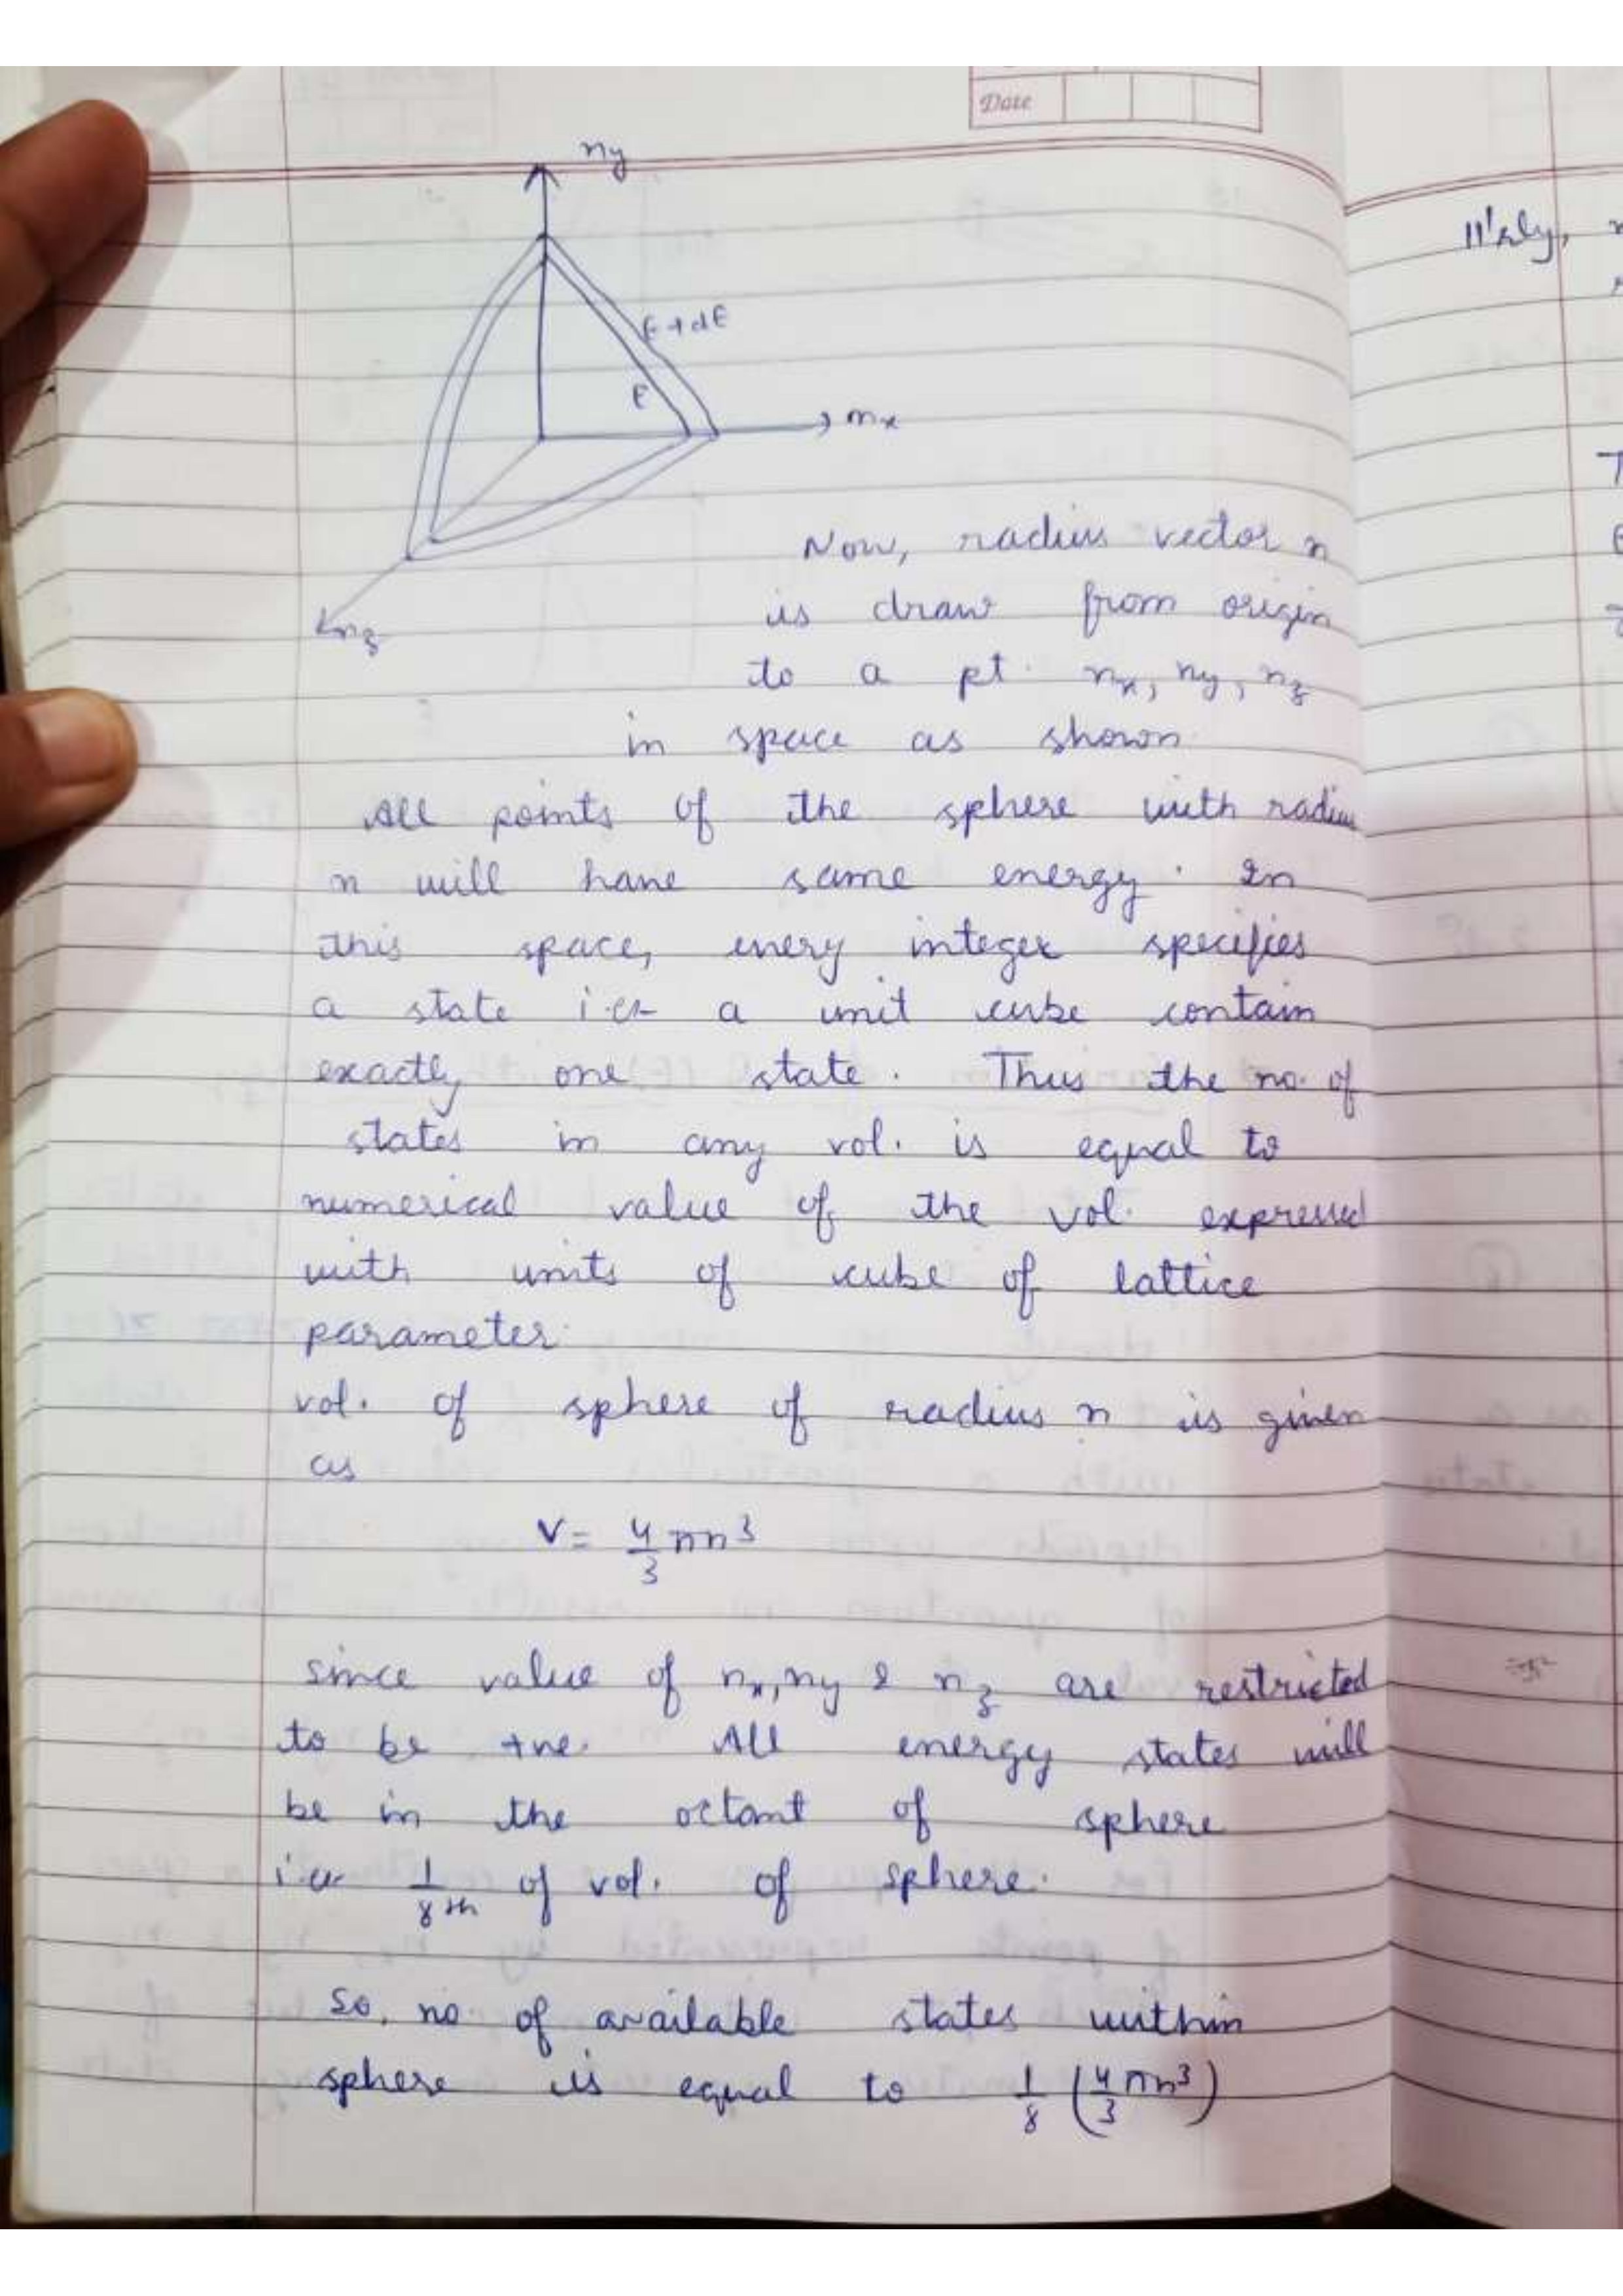 Date
ny
E+dE
E
nx
nz
Now, radius vector n
is draw from origin
to a pt. nx, ny, nz
in space as shown.
All points of the sphere with radius
n will have same energy. In
this space, every integer specifies
a state i.e. a unit cube contain
exactly one state. Thus the no. of
states in any vol. is equal to
numerical value of the vol. expressed
with units of cube of lattice
parameter.
vol. of sphere of radius n is given
as
V = 4/3 πn³
since value of nx, ny & nz are restricted
to be +ve. All energy states will
be in the octant of sphere
i.e. 1/8th of vol. of sphere.
So, no. of available states within
sphere is equal to 1/8 (4/3 πn³)
ll'rly,